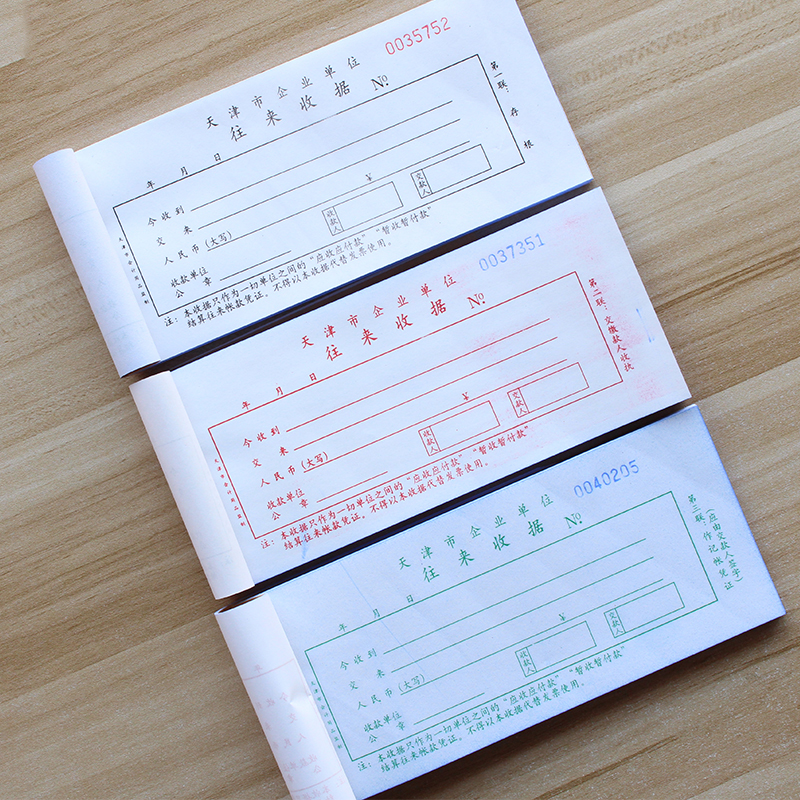 0035752
天津市企业单位
往来收据 №
年 月 日
今收到
交 来
人民币(大写)
¥
收款人
交款人
收款单位
公 章
注：本收据只作为一切单位之间的"应收应付款""暂收暂付款"
结算往来帐款凭证，不得以本收据代替发票使用。
第一联：存根
0037351
天津市企业单位
往来收据 №
年 月 日
今收到
交 来
人民币(大写)
¥
收款人
交款人
收款单位
公 章
注：本收据只作为一切单位之间的"应收应付款""暂收暂付款"
结算往来帐款凭证，不得以本收据代替发票使用。
第二联：交缴款人收执
0040205
天津市企业单位
往来收据 №
年 月 日
今收到
交 来
人民币(大写)
¥
收款人
交款人
收款单位
公 章
注：本收据只作为一切单位之间的"应收应付款""暂收暂付款"
结算往来帐款凭证，不得以本收据代替发票使用。
第三联：作记帐凭证
(应由交款人签字)